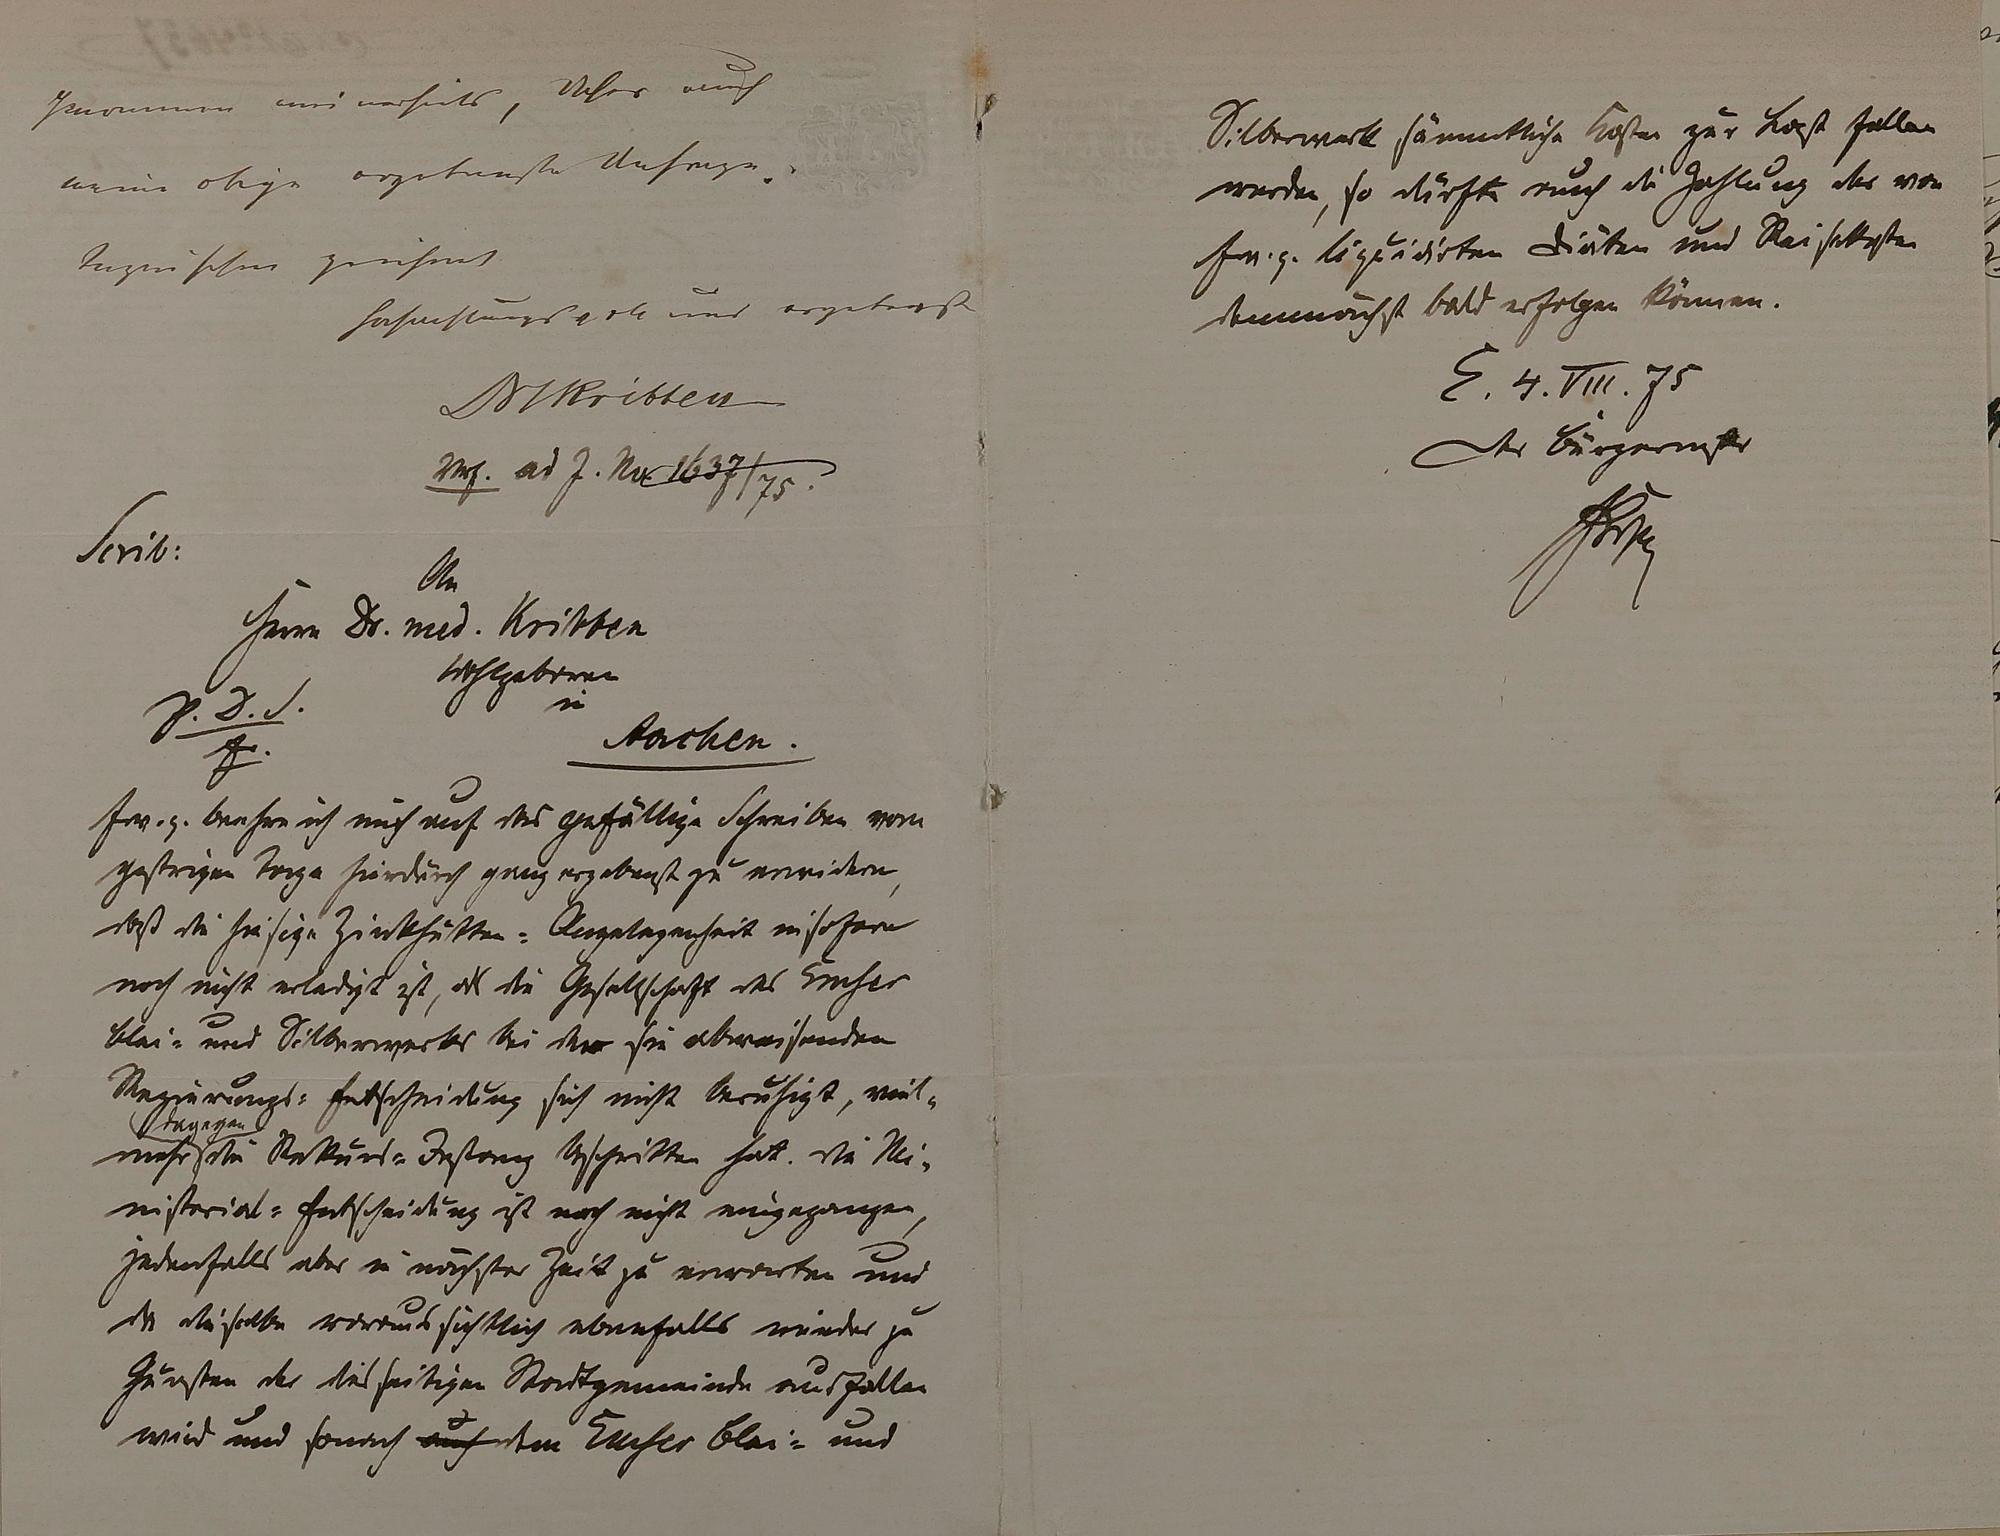 genommen meinerseits, daher auch
meine obige ergebenste Anfrage.
Inzwischen zeichnet
hochachtungsvoll und ergebenst
Dr Kribben
Urf. ad J. No 1637/75.
Scrib:
An
Herrn Dr. med. Kribben
Wohlgeboren
in
p. D. S.
fr.
Aachen.
Ew. g. beehre ich mich auf das gefällige Schreiben vom
gestrigen Tage hierdurch ganz ergebenst zu erwidern,
daß die hiesige Zinkhütten= Angelegenheit insofern
noch nicht erledigt ist, als die Gesellschaft des Emser
Blei= und Silberwerks bei der sie abweisenden
Regierungs= Entscheidung sich nicht beruhigt, viel=
dagegen
mehr die Rekurs= Instanz beschritten hat. die Mi=
nisterial= Entscheidung ist noch nicht eingegangen,
jedenfalls aber in nächster Zeit zu erwarten und
da dieselbe voraussichtlich ebenfalls wieder zu
Gunsten der diesseitigen Stadtgemeinde ausfallen
wird und sonach auch dem Emser Blei= und
Silberwerk sämmtliche Kosten zur Last fallen
werden, so dürfte auch die Zahlung der von
Ew. g. liquidirten Diäten und Reisekosten
demnächst bald erfolgen können.
E. 4. VIII. 75
Der Bürgermstr